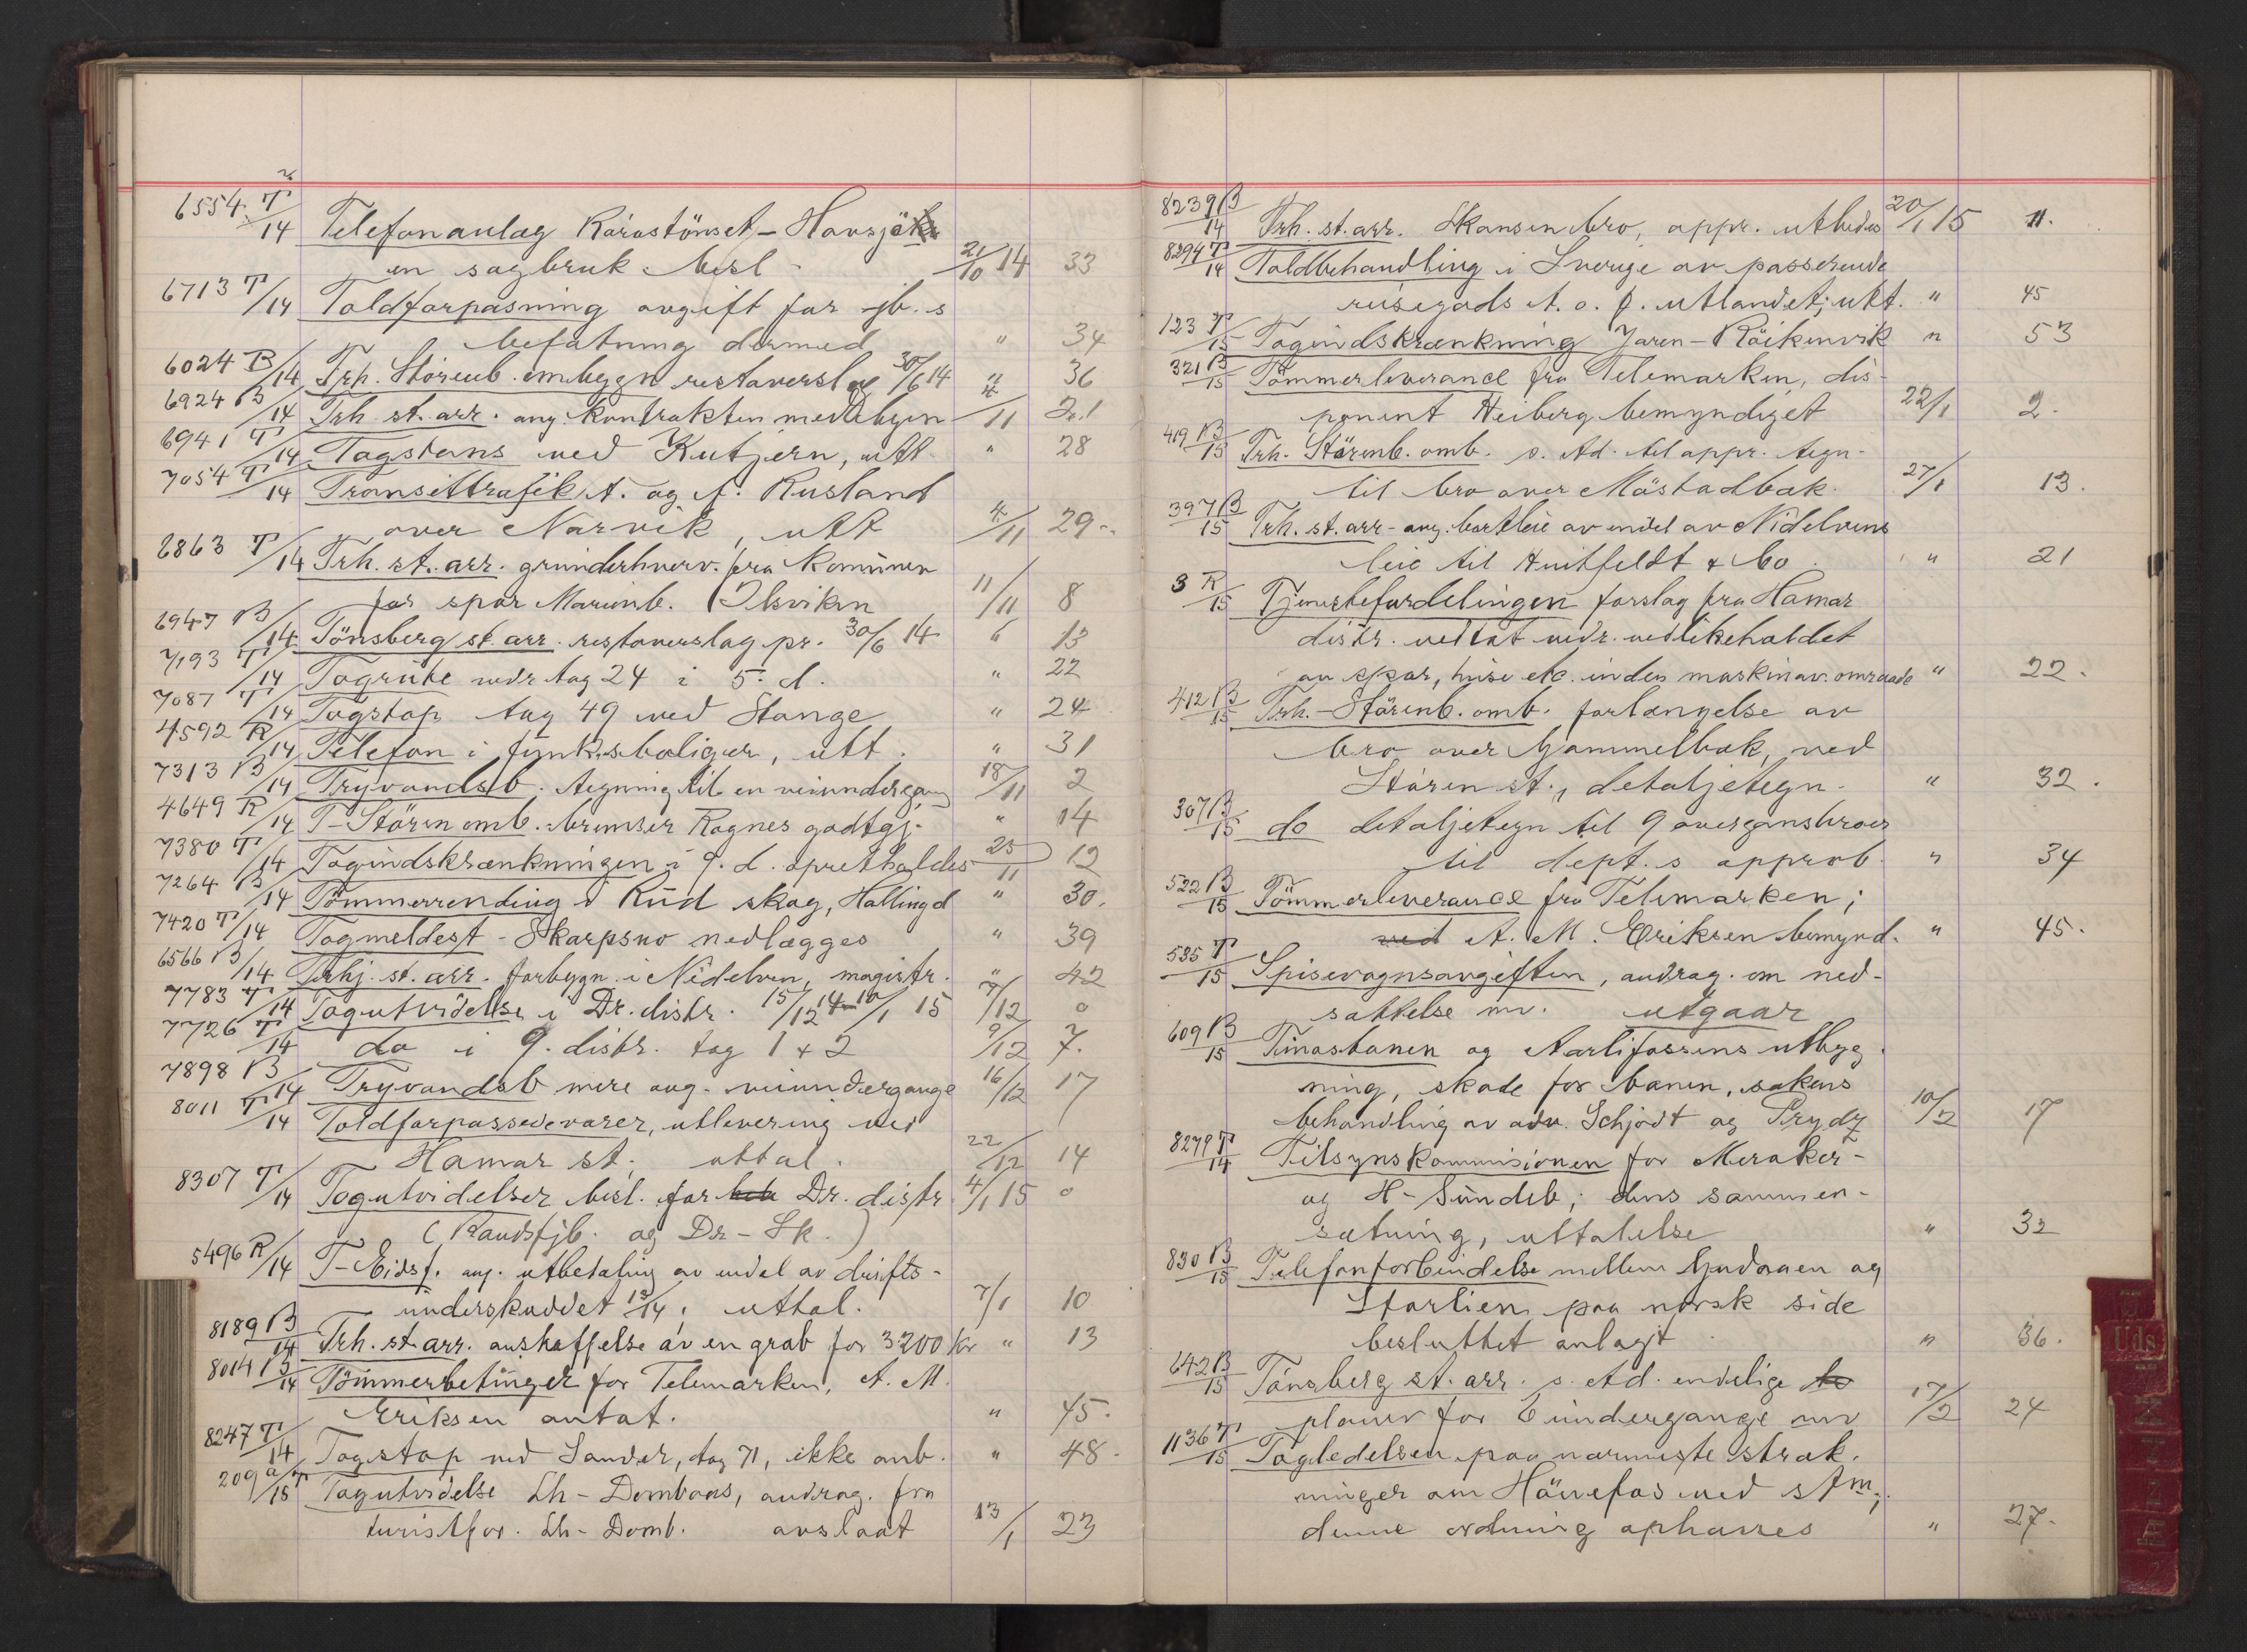 6554 T/14 Telefonanlag Rørostønset - Havsjø
en sagbruk besl - 21/10 14 33
6713 T/14 Toldforpasning avgift for jb.s
befatning dermed " 34
6024 B/14 Trh. Störenb. ombygn restoverslag 30/6 14 " 36
6924 B/14 Trh. st. arr. ang. kontrakten med bygn 4/11 21
6941 T/14 Togstans ved Kutjern, utt. " 28
7054 T/14 Transittrafik t. og f. Rusland
over Narvik, utt 4/11 29-
6863 T/14 Trh. st. arr. grunderhverv. fra Komunen
for spor Marienb. Ilsviken 11/11 8
6947 B/14 Tönsberg st. arr. restoverslag pr. 30/6 14 " 13
7193 T/14 Togrute vedr tog 24 i 5. d. " 22
7087 T/14 Togstop tog 49 ved Stange " 24
4592 R/14 Telefon i funk.sboliger, utt. " 31
7313 B/14 Tryvandsb. tegning til en veiundergang 18/11 2
4649 R/14 T-Stören omb. bremser Ragnes godtgj. " 14
7380 T/14 Togindskrænkningen i 9. d. opretholdes 25/11 12
7264 B/14 Tömmerrending i Rud skog, Hallingd " 30.
7420 T/14 Togmeldest - Skarpsno nedlægges " 39
6566 B/14 Trhj. st. arr. forbygn. i Nidelven, magistr. " 42
7783 T/14 Togutvidelse i Dr. distr. 15/12 14 - 10/1 15 7/12 0
7726 T/14 do i 9. distr. tog 1 + 2 9/12 7.
7898 B/14 Tryvandsb mere ang. veiundergange 16/12 17
8011 T/14 Toldforpassede varer, utlevering ved
Hamar st; uttal. 22/12 14
8307 T/14 Togutvidelser besl. for Dr. distr. 4/1 15 0
(Randsfjb. og Dr-Sk.)
5496 R/14 T-Eidsf. ang. utbetaling av endel av drifts-
underskuddet 13/14, uttal. 7/1 10
8189 B/14 Trh. st. arr. anskaffelse av en grab for 3200 kr " 13
8014 B/14 Tömmerbetinger for Telemarken, A. M.
Eriksen antat. " 45.
8247 T/14 Togstop ved Sander, tog 71, ikke anb. " 48.
209 a T/15 Togutvidelse Lh - Dombaas, andrag. fra
turistfor. Lh - Domb. avslaat 13/1 23
8239 B/14 Trh. st. arr. Skansenbro, appr. utbedes 20/1 15 11.
8294 T/14 Toldbehandling i Sverige av passerende
reisegods t. o. f. utlandet; utt. " 45
123 T/15 Togindskrænkning Jaren - Röikenvik " 53
321 B/15 Tömmerleverance fra Telemarken, dis-
ponent Heiberg bemyndiget 22/1 2.
419 B/15 Trh. Störenb. omb. s. Ad. til appr. tegn.
til bro over Möstadbæk. 27/1 13.
397 B/15 Trh. st. arr - ang. bortleie av endel av Nidelvens
leie til Huitfeldt & Co. " 21
3 R/15 Tjenestefordelingen forslag fra Hamar
distr. vedtat vedr. vedlikeholdet
av spor, huse etc. inden maskinav. omraade " 22.
412 B/15 Trh. - Störenb. omb. forlængelse av
bro over Gammelbæk, ved
Stören st., detaljetegn. " 32.
307 B/15 do detaljetegn til 9 overgansbroer
til dept.s approb. " 34
522 B/15 Tömmerleverance fra Telemarken;
ved A. M. Eriksen bemynd. " 45.
535 T/15 Spisevognsavgiften, andrag. om ned-
sættelse mv. utgaar
609 B/15 Tinosbanen og Aarlifossens utbyg
ning, skade for banen, sakens
behandling av adv. Schjødt og Prydz 10/2 17
8279 T/14 Tilsynskommisionen for Meraker-
og H-Sundsb; dens sammen-
sætning, uttalelse " 32
830 B/15 Telefonforbindelse mellem Gudaaen og
Storlien paa norsk side
besluttet anlagt " 36.
642 B/15 Tönsberg st. arr. s. Ad. endelige
planer for 6 undergange mv 17/2 24
1136 T/15 Togledelsen paa nærmeste stræk.
ninger om Hönefos ved stm.;
denne ordning ophæves " 27.
Uds